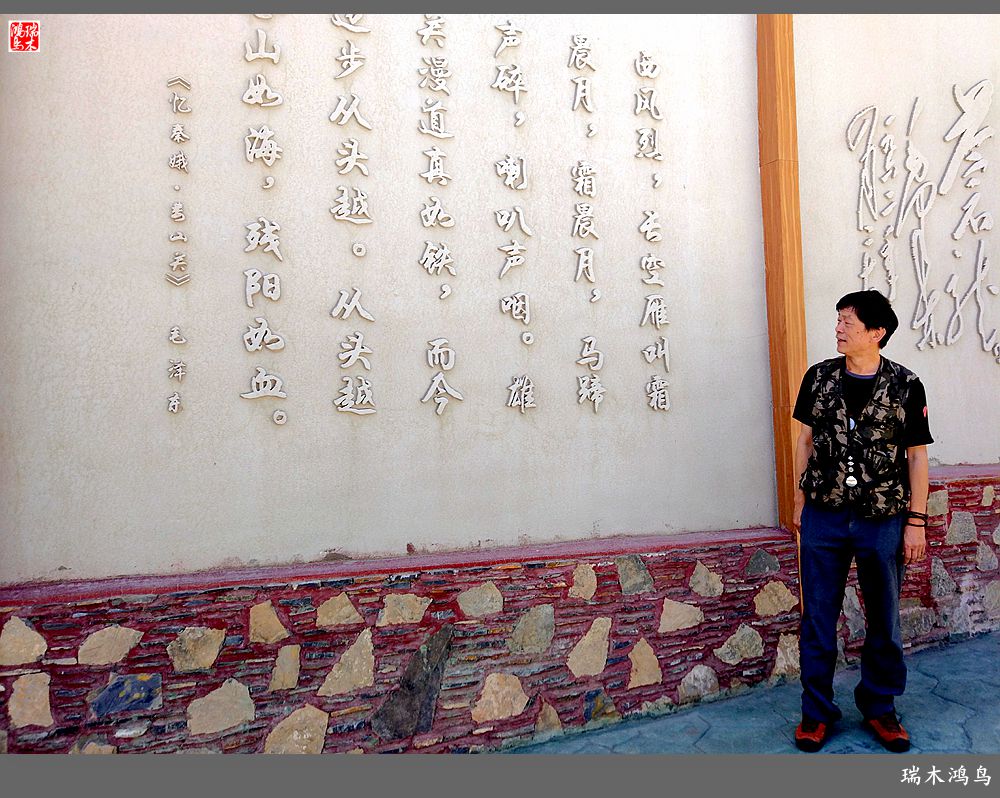 西风烈，长空雁叫霜
晨月，霜晨月，马蹄
声碎，喇叭声咽。雄
关漫道真如铁，而今
迈步从头越。从头越
山如海，残阳如血。
《忆秦娥·娄山关》 毛泽东
瑞木鸿鸟
瑞木鸿鸟